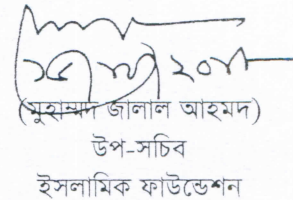 (মুহাম্মাদ জালাল আহমদ)
উপ-সচিব
ইসলামিক ফাউন্ডেশন